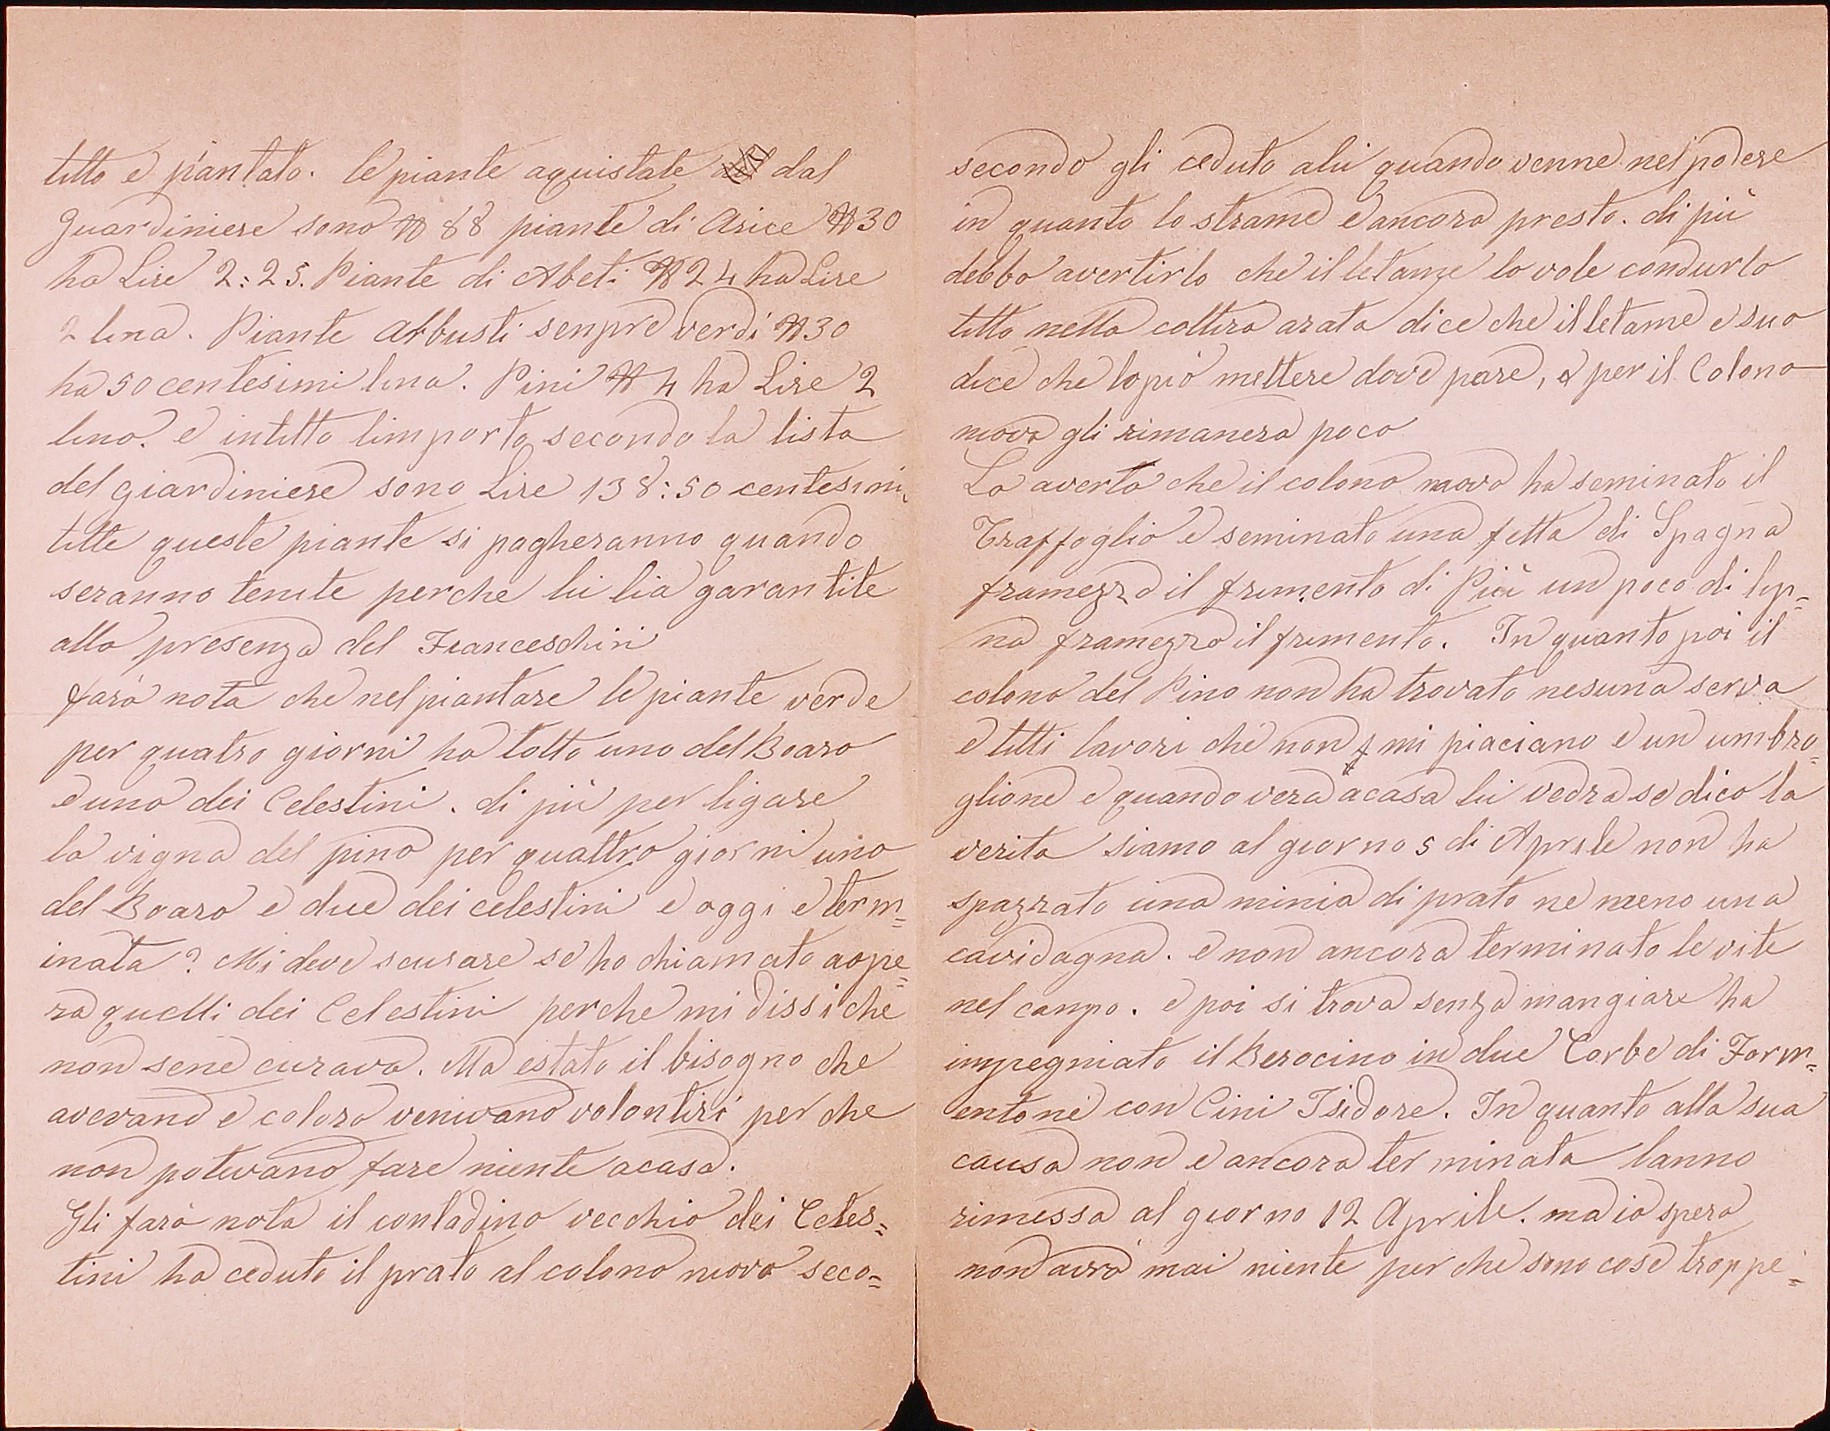 tutto e piantato. le piante aquistate dal
Guardiniere sono N 88 piante di Arice N 30
ha Lire 2:25. Piante di Abeti N 24 ha Lire
2 luna. Piante Arbusti senpre verdi N 30
ha 50 centesimi luna. Pini N 4 ha Lire 2
luno. e intutto limporto secondo la lista
del giardiniere sono Lire 138:50 centesimi,
tutte queste piante si pagheranno quando
seranno tenute perche lui lia garantite
alla presenza del Franceschini
farò nota che nel piantare le piante verde
per quatro giorni ho tolto uno del Boaro
e uno dei Celestini. di più per ligare
la vigna del pino per quattro giorni uno
del Boaro e due dei celestini e oggi e term=
inata? Mi deve scusare se ho chiamato aope=
ra quelli dei Celestini perche mi dissi che
non sene curava. Ma estato il bisogno che
avevano e coloro venivano volontiri perche
non potevano fare niente acasa.
Gli farò nota il contadino vecchio dei Celes=
tini ha ceduto il prato al colono nuovo seco=
secondo gli ceduto alui quando venne nel podere
in quanto lo strame e ancora presto. di più
debbo avertirlo che il letame lo vole condurlo
tutto nella coltura arata dice che il letame e suo
dice che lopiò mettere dove pare, e per il Colono
novo gli rimanera poco
Lo averto che il colono nuovo ha seminato il
Traffoglio e seminato una fetta di Spagna
framezzo il frumento di Più un poco di lup=
na framezzo il frumento. In quanto poi il
colono del Pino non ha trovato nesuna serva
e tutti lavori che non mi piaciano e un umbro=
glione e quando vera acasa lui vedra se dico la
verita siamo al giorno 5 di Aprile non ha
spazzato una minia di prato ne meno una
cavidagna. e non ancora terminato le vite
nel canpo. e poi si trova senza mangiare ha
impegniato il Berocino in due Corbe di Form=
entone con Cini Isidore. In quanto alla sua
causa non e ancora terminata lanno
rimessa al giorno 12 Aprile. ma io spero
non avrà mai niente perche sono cose troppe=